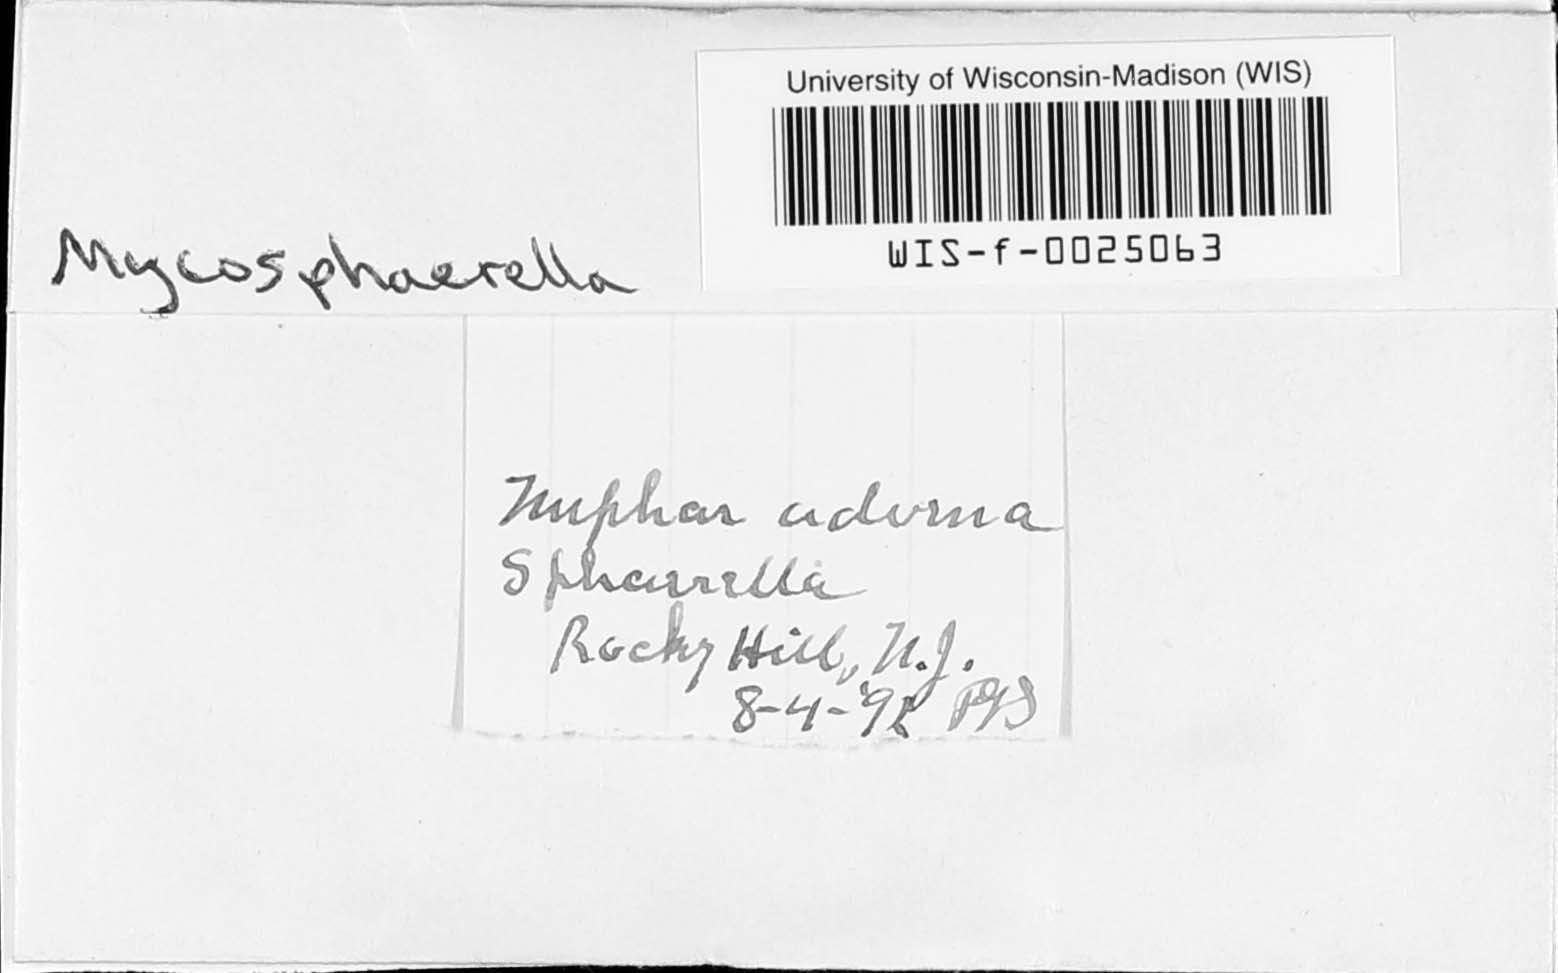 University of Wisconsin-Madison (WIS)
WIS-f-0025063
Mycosphaerella
Nuphar advena
Sphaerella
Rocky Hill, N.J.
8-4-'9